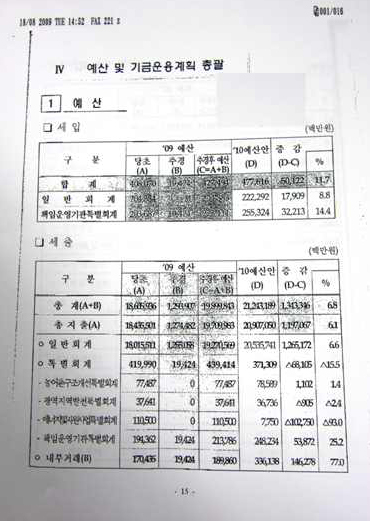 18/08 2009 TUE 14:52 FAX 221 2
001/016
Ⅳ 예산 및 기금운용계획 총괄
1 예 산
□ 세 입
(백만원)
구 분 '09 예산 '10예산안 (D) 증 감 (D-C) %
당초 (A) 추경 (B) 추경후 예산 (C=A+B)
합 계 477,616 50,122 11.7
일 반 회 계 222,292 17,909 8.8
책임운영기관특별회계 255,324 32,213 14.4
□ 세 출
(백만원)
구 분 '09 예산 '10예산안 (D) 증 감 (D-C) %
당초 (A) 추경 (B) 추경후 예산 (C=A+B)
총 계(A+B) 18,605,936 1,293,907 19,899,843 21,243,189 1,343,346 6.8
총 지 출(A) 18,435,501 1,274,482 19,709,983 20,907,050 1,197,067 6.1
ㅇ 일 반 회 계 18,015,511 1,255,058 19,270,569 20,535,741 1,265,172 6.6
ㅇ 특 별 회 계 419,990 19,424 439,414 371,309 △68,105 △15.5
- 농어촌구조개선특별회계 77,487 0 77,487 78,589 1,102 1.4
- 광역지역발전특별회계 37,641 0 37,641 36,736 △905 △2.4
- 에너지및자원사업특별회계 110,500 0 110,500 7,750 △102,750 △93.0
- 책임운영기관특별회계 194,362 19,424 213,786 248,234 53,872 25.2
ㅇ 내부거래(B) 170,435 19,424 189,860 336,138 146,278 77.0
- 15 -